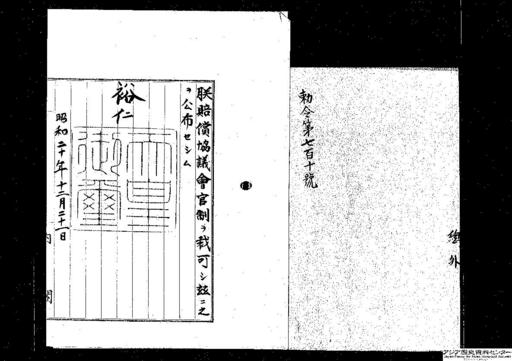 勅令第七百十號
朕賠償協議會官制ヲ裁可シ玆ニ之
ヲ公布セシム
裕仁
昭和二十年十二月二十一日
内閣
アジア歴史資料センター